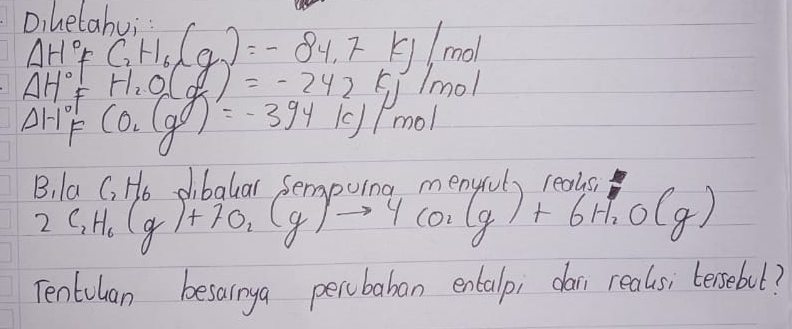 Diketahui:
ΔH°F C₂H₆(g) = - 84,7 kJ/mol
ΔH°F H₂O(g) = - 242 kJ/mol
ΔH°F CO₂(g) = - 394 kJ/mol
Bila C₂H₆ dibakar sempurna menurut reaksi:
2 C₂H₆(g) + 7O₂(g) → 4 CO₂(g) + 6H₂O(g)
Tentukan besarnya perubahan entalpi dari reaksi tersebut?